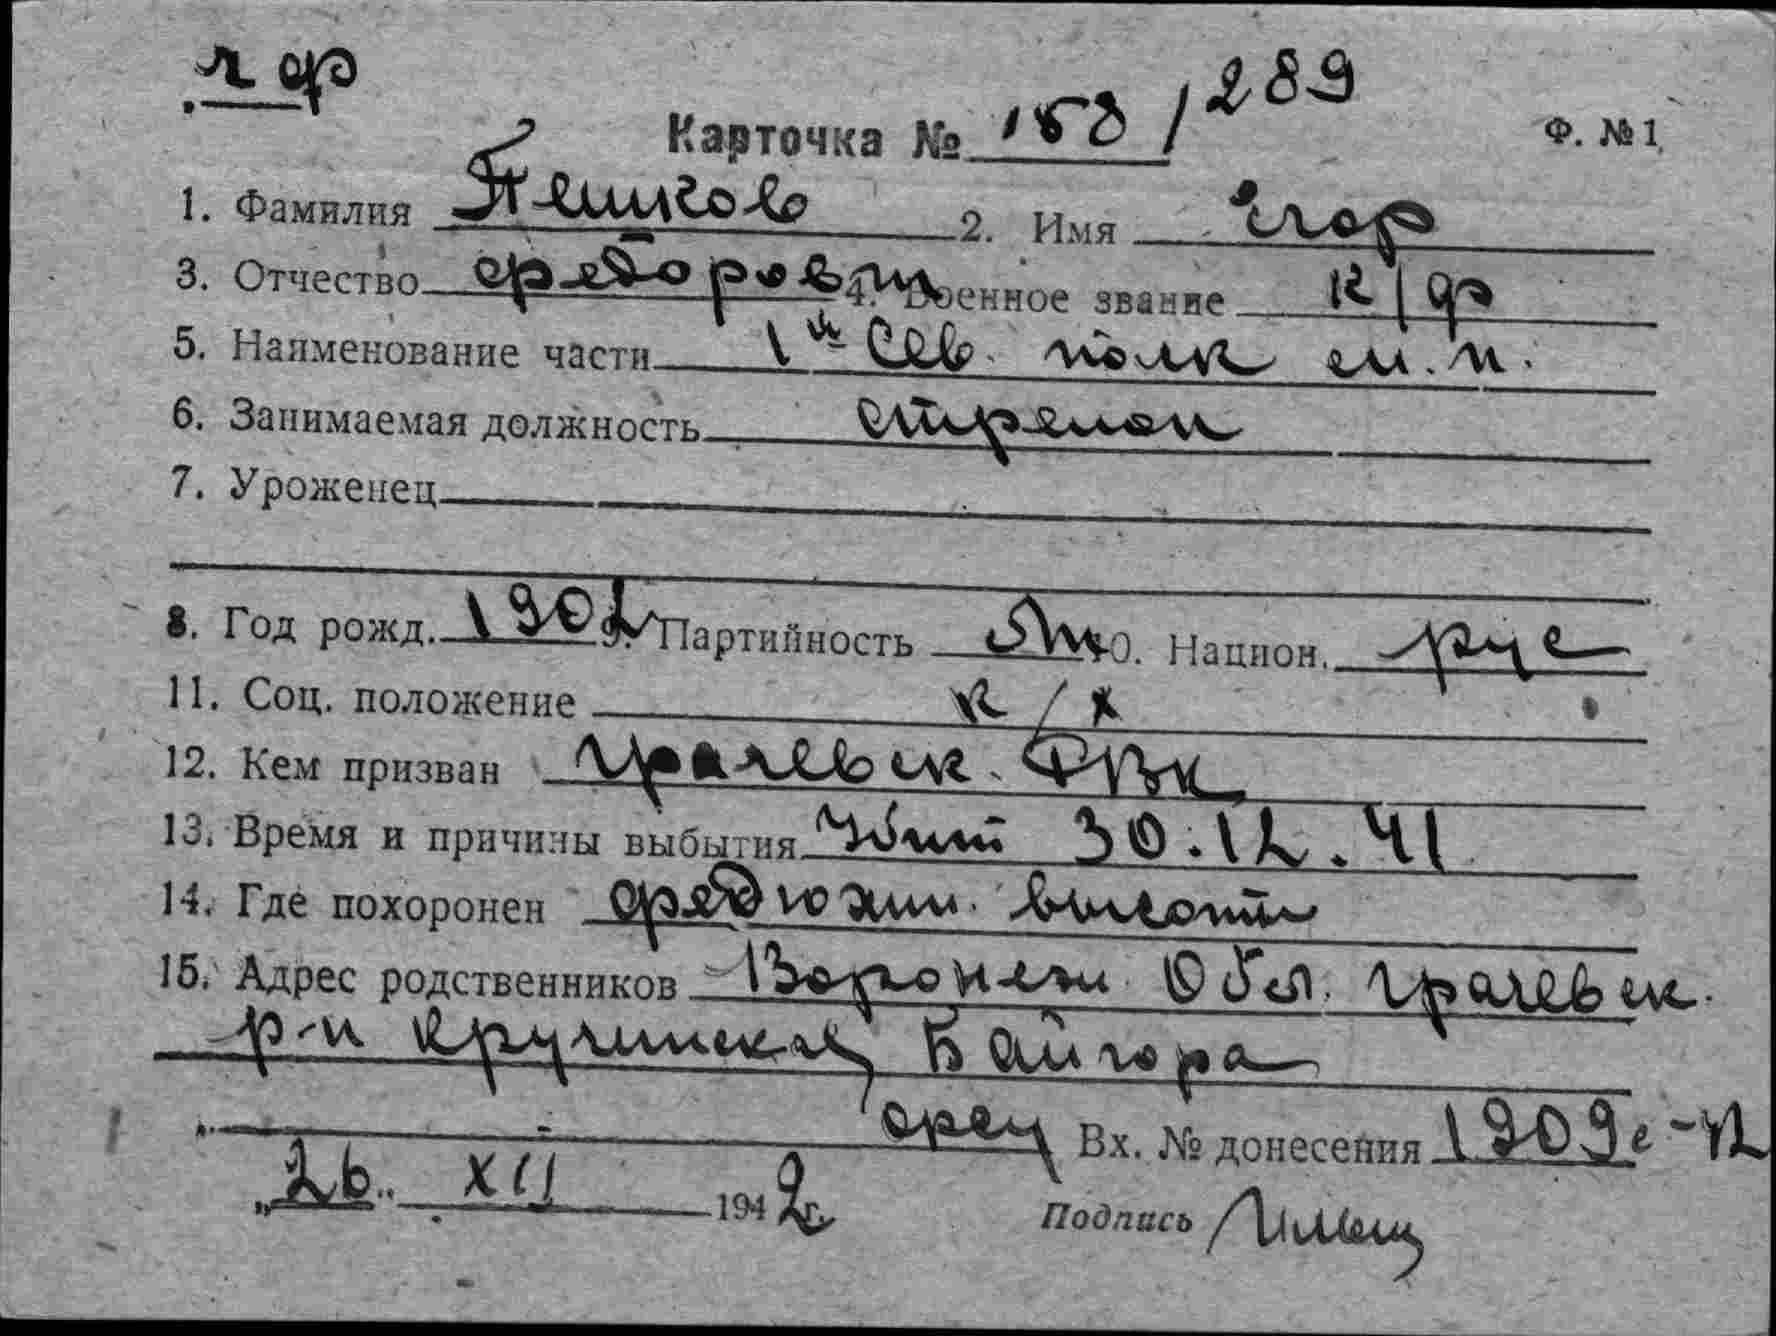 ч ф
Карточка № 158/289 Ф. №1
1. Фамилия Пешков 2. Имя Егор
3. Отчество Федорович 4. Военное звание к/ф
5. Наименование части 1й Сев. полк м.п.
6. Занимаемая должность стрелок
7. Уроженец
8. Год рожд. 1902 9. Партийность 10. Национ. рус
11. Соц. положение к/х
12. Кем призван Грачевск. РВК
13. Время и причины выбытия Убит 30.12.41
14. Где похоронен Федюхин. высоты
15. Адрес родственников Воронеж Обл. Грачевск.
р-н Кручинская Байгора
Вх. № донесения 1909с-42
„26" XII 1942г. Подпись